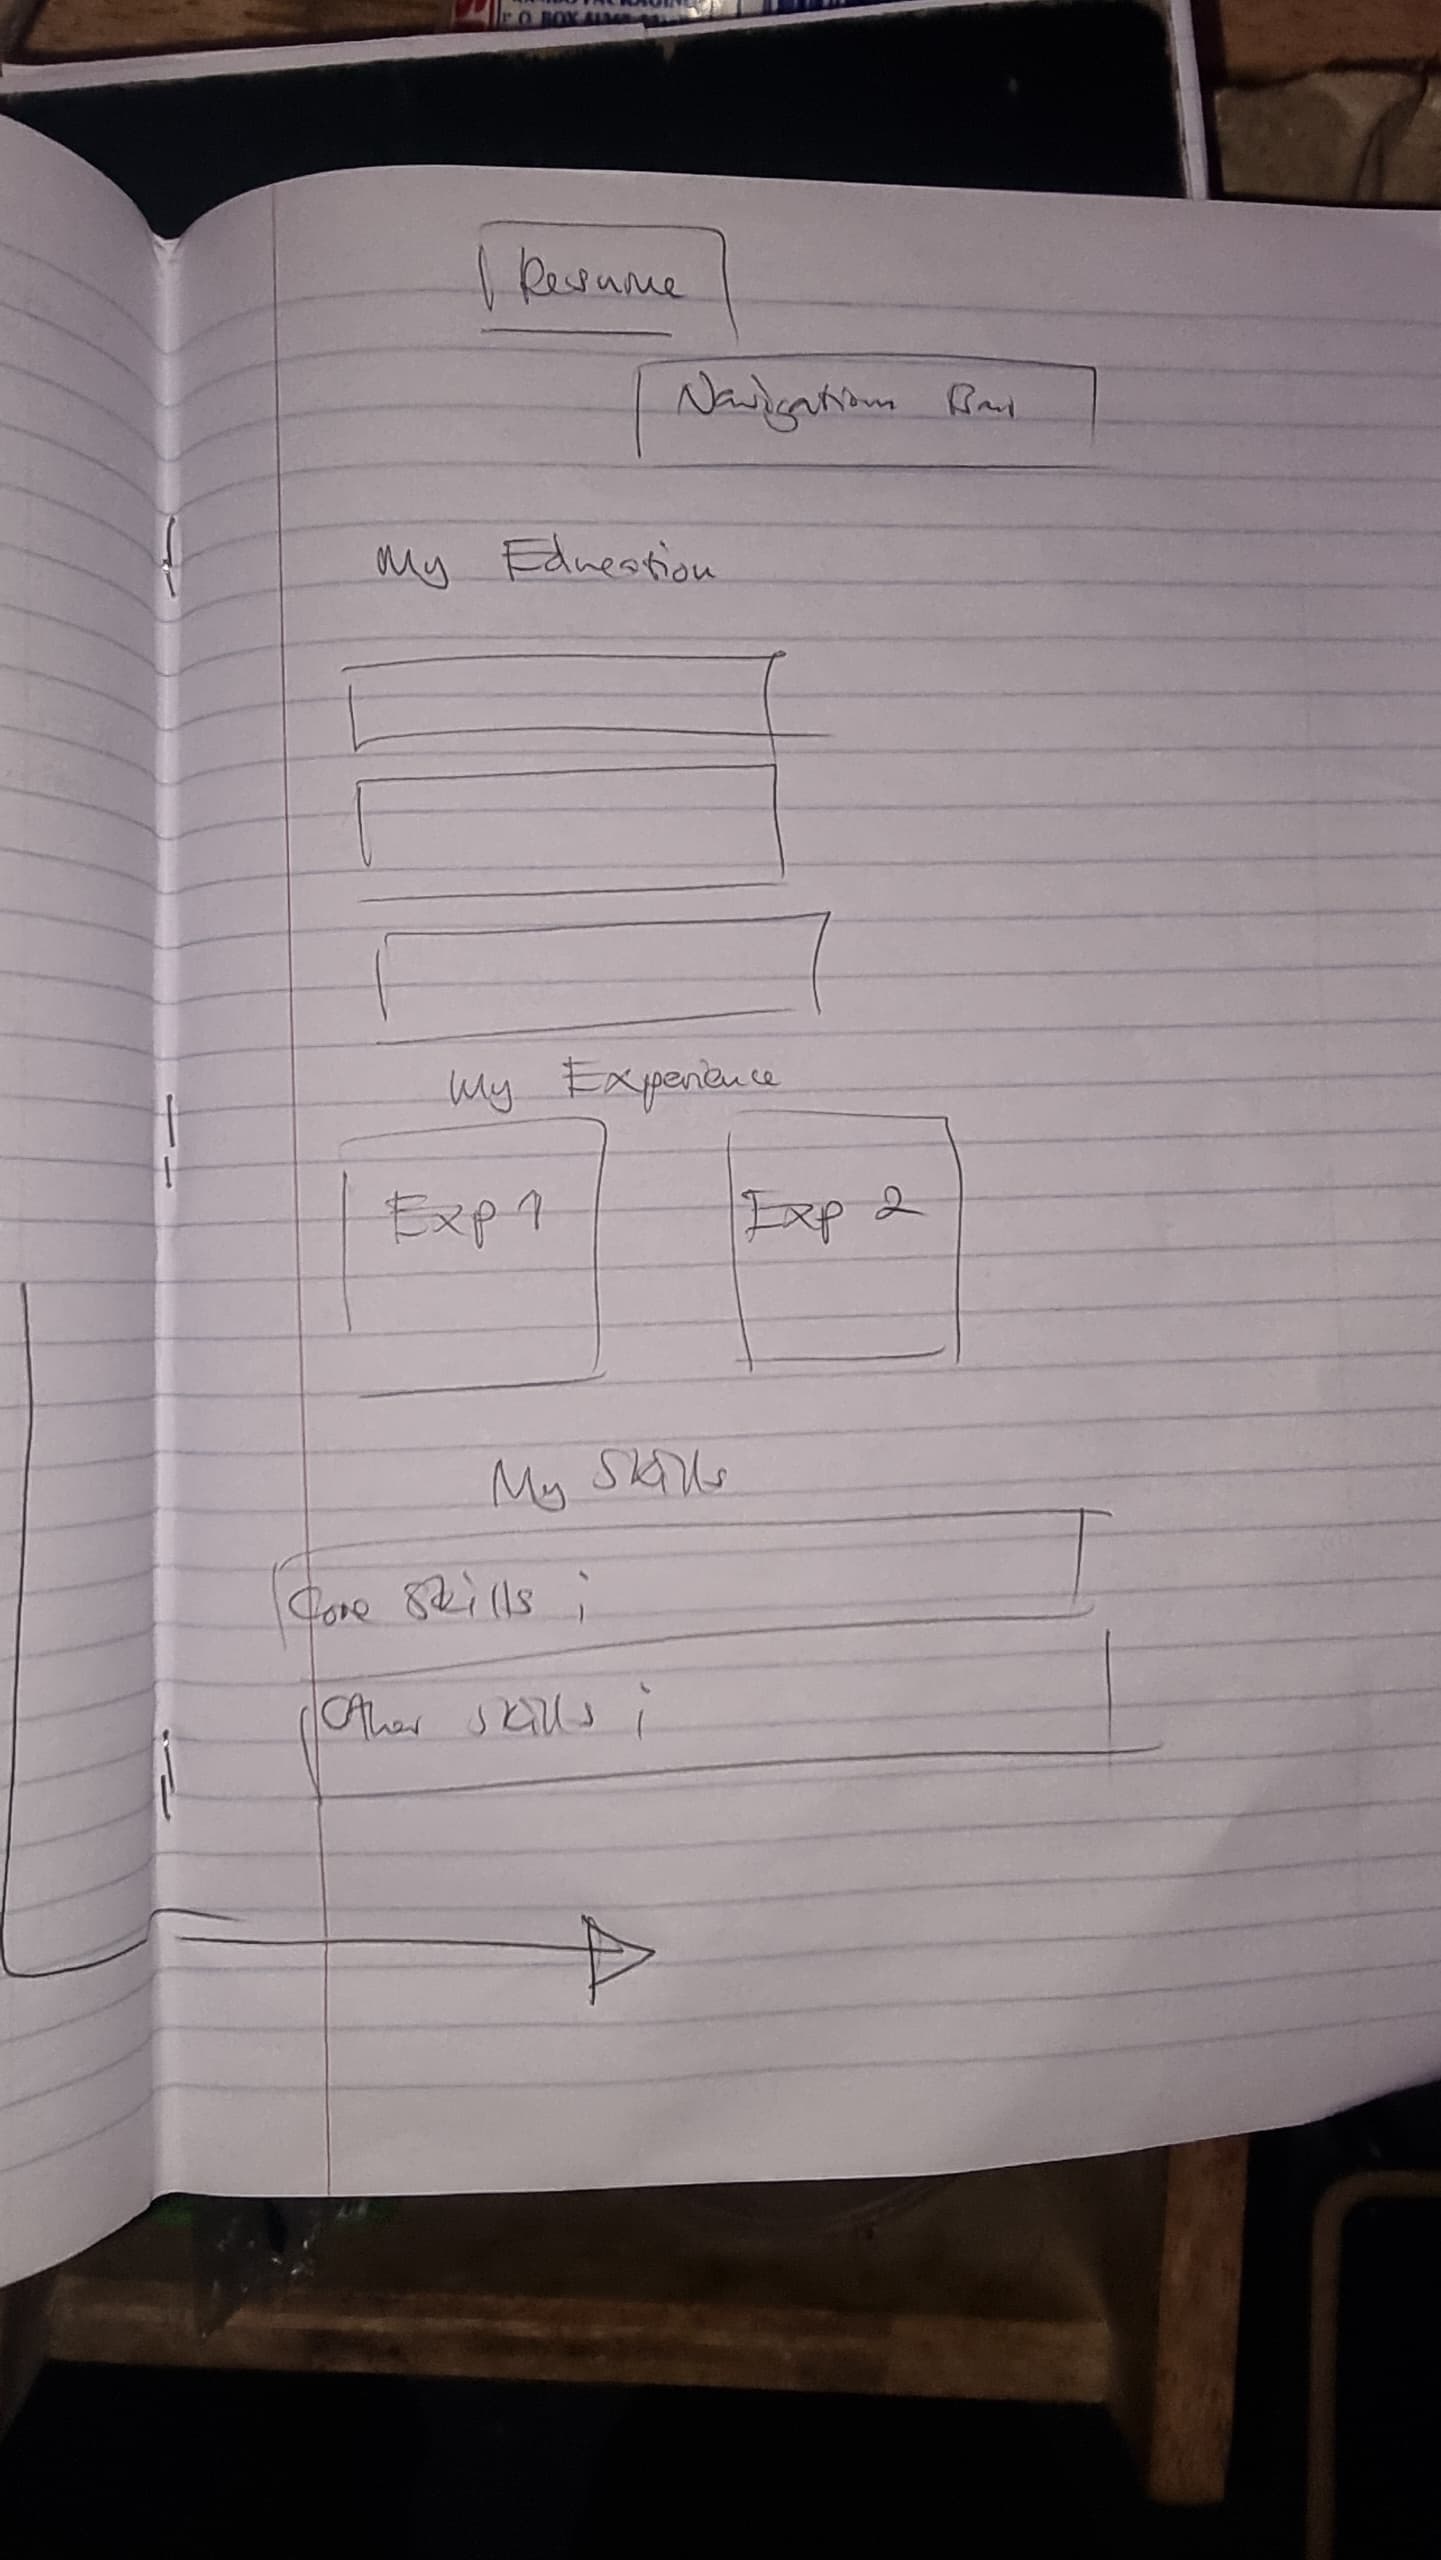 P. O. BOX
Resume
Navigation Bar
My Education
My Experience
Exp 1
Exp 2
My Skills
Core Skills ;
Other skills ;